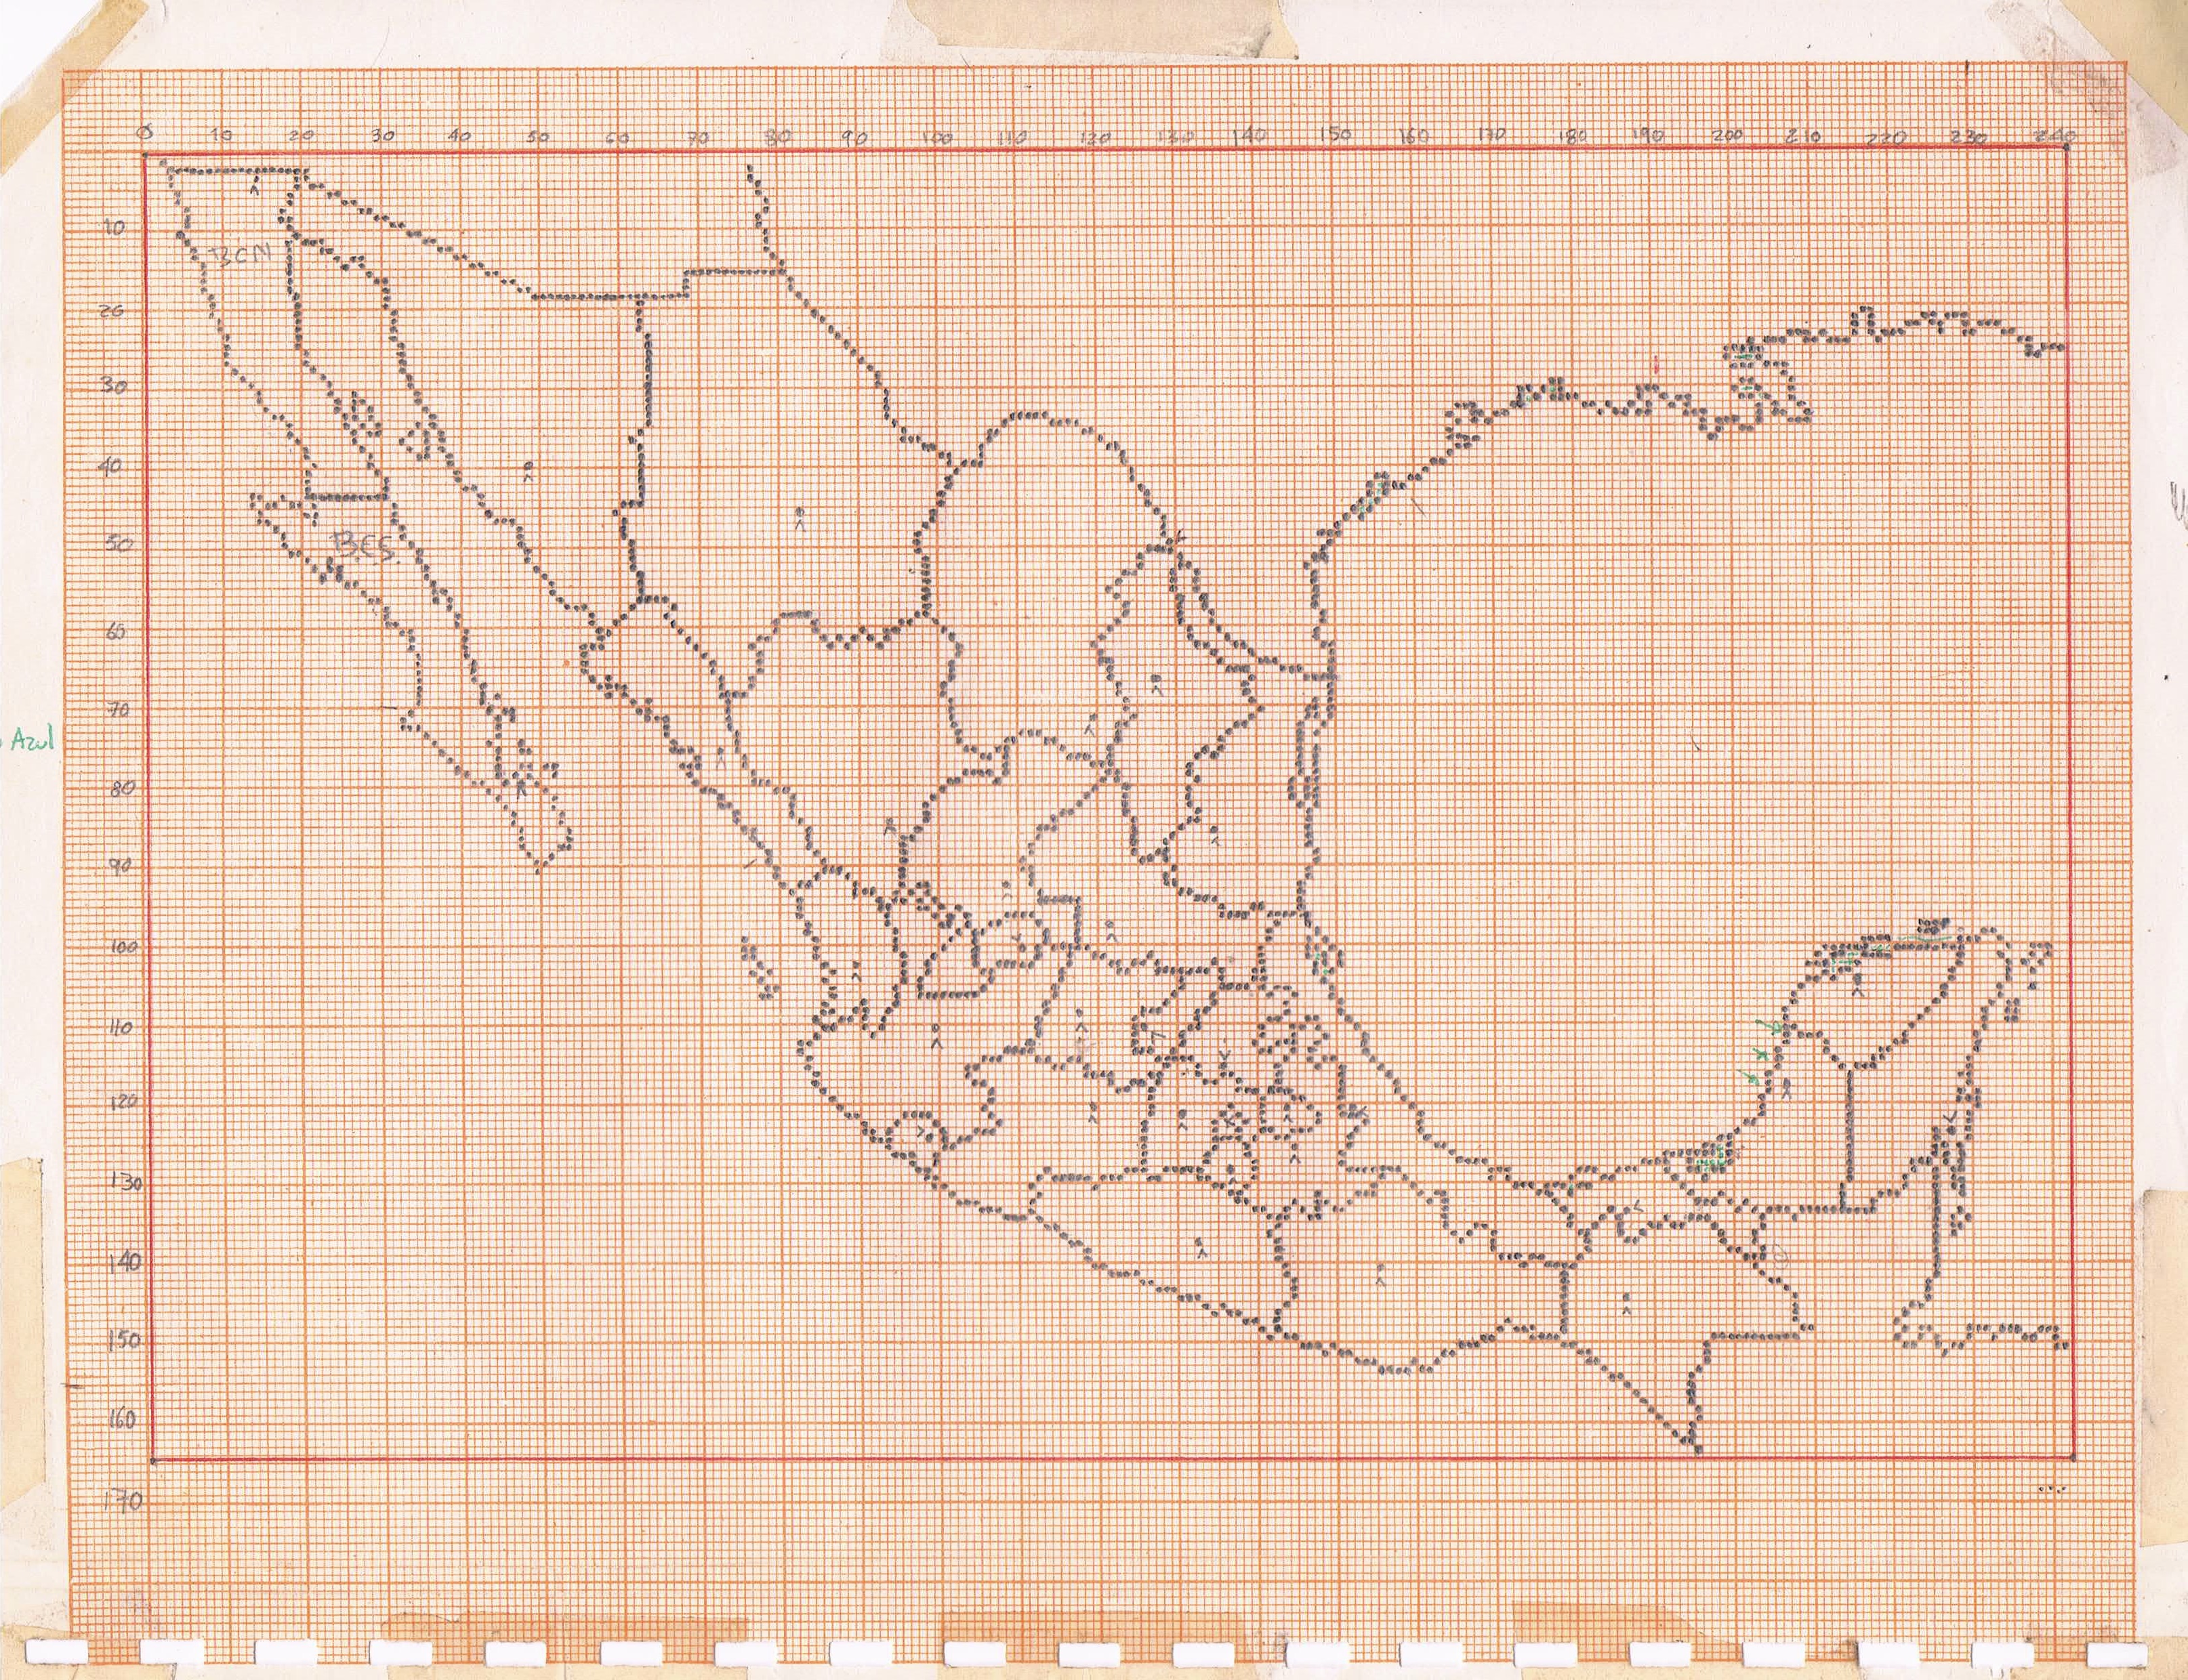 0 10 20 30 40 50 60 70 80 90 100 110 120 130 140 150 160 170 180 190 200 210 220 230 240
10
BCN
20
30
40
50
BCS.
60
70
Azul
80
90
100
110
120
130
140
150
160
170